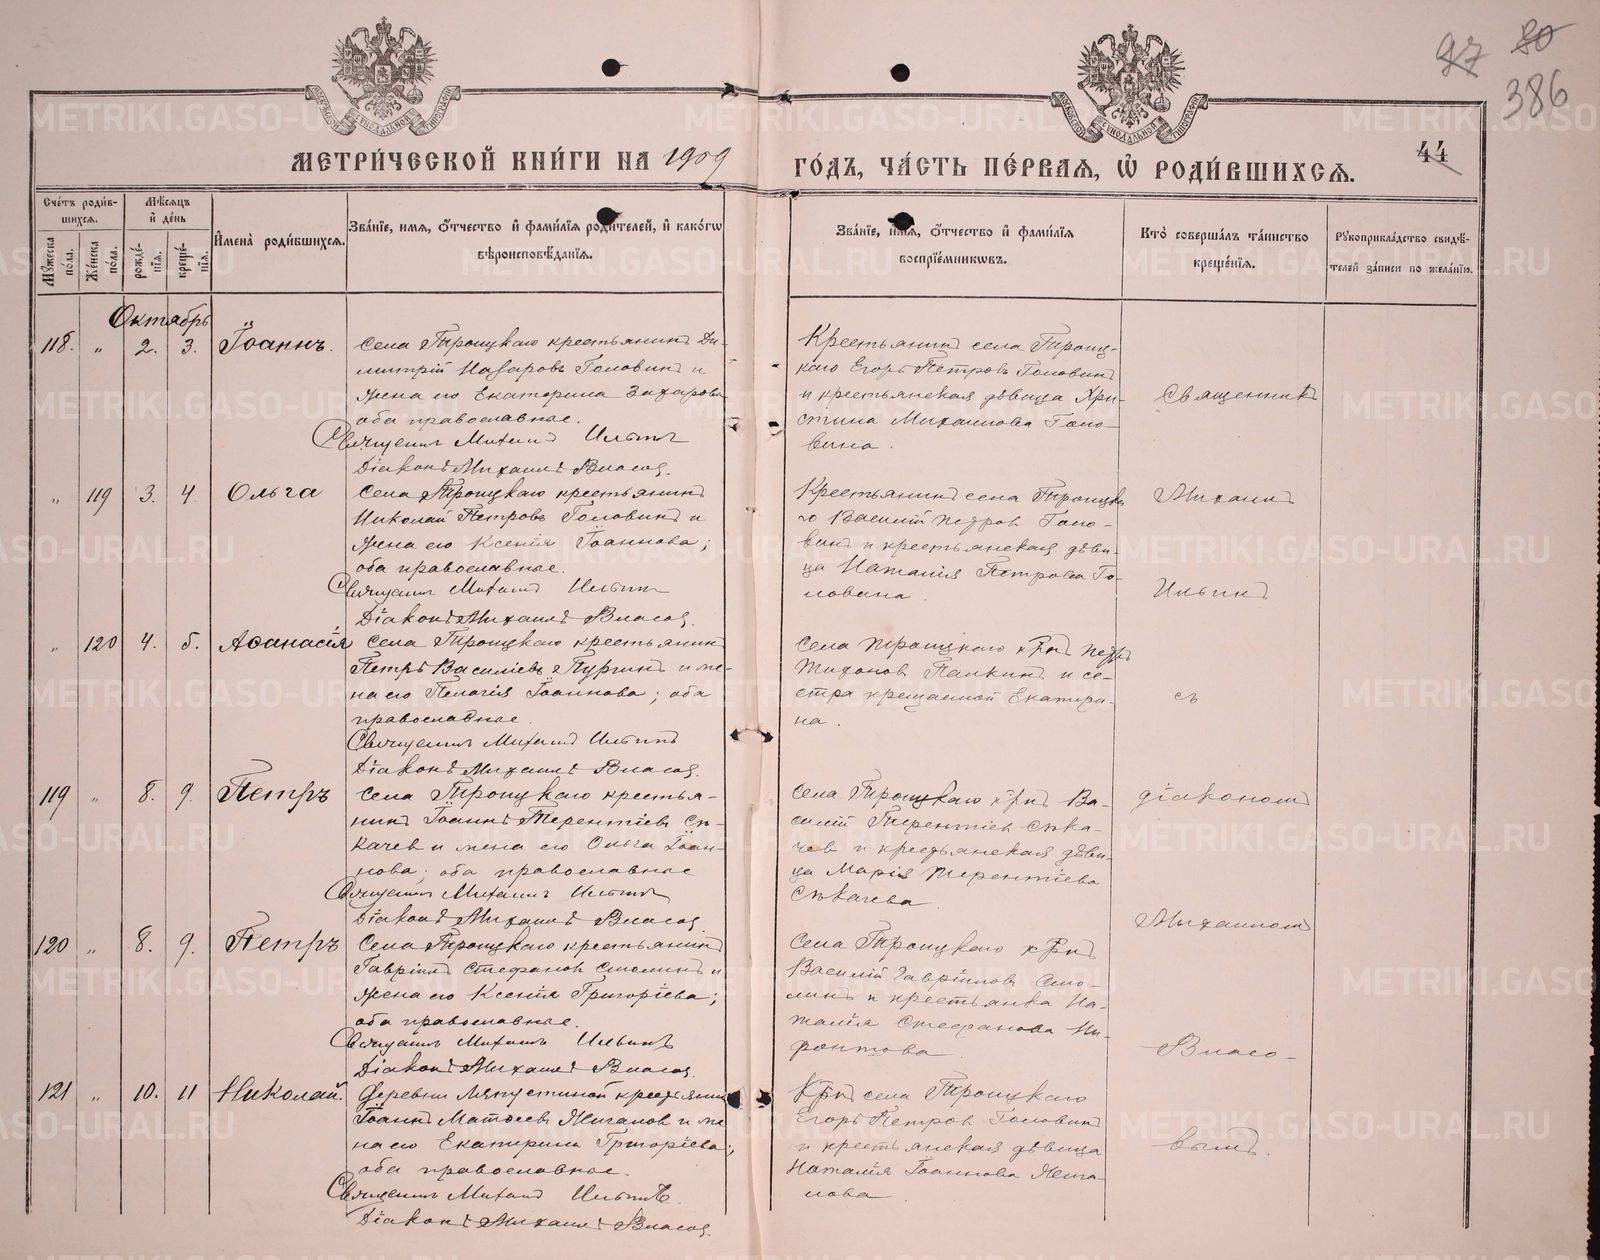 97 80
386
44
МЕТРИ́ЧЕСКОЙ КНИ́ГИ НА 1909 ГО́ДЪ, ЧА́СТЬ ПЕ́РВАЯ, Ѡ РОДИ́ВШИХСЯ.
Сче́тъ роди́вшихся.
Му́жеска по́ла.
Же́нска по́ла.
Мѣ́сяцъ и де́нь
рожде́нія.
креще́нія.
Имена̀ роди́вшихся.
Зва́ніе, имя, о́тчество и фами́лія роди́телей, и како́гѡ вѣроисповѣ́данія.
Зва́ніе, имя, о́тчество и фами́лія воспріе́мникѡвъ.
Кто̀ соверша́лъ та́инство креще́нія.
Рукоприкла́дство свидѣ́телей за́писи по жела́нію.
Октябрь
118. " 2. 3. Іоаннъ.
Села Троицкаго крестьянинъ Ди-
митрій Назаровъ Головинъ и
жена его Екатерина Захарова
оба православные.
Священникъ Михаилъ Ильинъ
Діаконъ Михаилъ Власов.
Крестьянинъ села Троиц-
каго Егоръ Петровъ Головинъ
и крестьянская дѣвица Хри-
стина Михаилова Голо-
вина.
" 119 3. 4. Ольга
Села Троицкаго крестьянинъ
Николай Петровъ Головинъ и
жена его Ксенія Іоаннова;
оба православные.
Священникъ Михаилъ Ильинъ
Діаконъ Михаилъ Власов.
Крестьянинъ села Троицка
го Василій Петров Голо-
винъ и крестьянская дѣви-
ца Наталія Петрова Го-
ловина.
" 120 4. 5. Аѳанасія
Села Троицкаго крестьянинъ
Петръ Василіевъ Пургинъ и же-
на его Пелагія Іоаннова; оба
православные.
Священникъ Михаилъ Ильинъ
Діаконъ Михаилъ Власов.
Села Троицкаго крнъ Петръ
Тихонов Палкинъ и се-
стра крещаемой Екатери-
на.
119 " 8. 9. Петръ
Села Троицкаго крестья-
нинъ Іоаннъ Терентіевъ Сѣ-
качев и жена его Ольга Іоан-
нова; оба православные
Священникъ Михаилъ Ильинъ
Діаконъ Михаилъ Власов.
Села Троицкаго крнъ Ва-
силій Терентіев Сѣка-
чев и крестьянская дѣви-
ца Марія Терентіева
Сѣкачева.
120 " 8. 9. Петръ
Села Троицкаго крестьянинъ
Гавріилъ Стефанов Смолинъ и
жена его Ксенія Григоріева;
оба православные.
Священникъ Михаилъ Ильинъ
Діаконъ Михаилъ Власов.
Села Троицкаго крнъ
Василій Гавріиловъ Смо-
линъ и крестьянка На-
талія Стефанова Ни-
фонтова.
121 " 10. 11 Николай.
Деревни Ляпустиной крестьянинъ
Іоаннъ Матѳеевъ Жигалов и же-
на его Екатерина Григоріева;
оба православные.
Священникъ Михаилъ Ильинъ.
Діаконъ Михаилъ Власов.
Крнъ села Троицкаго
Егоръ Петров Головинъ
и крестьянская дѣвица
Наталія Іоаннова Жига-
лова.
Священникъ
Михаилъ
Ильинъ
съ
діакономъ
Михаиломъ
Власо-
вымъ.
METRIKI.GASO-URAL.RU